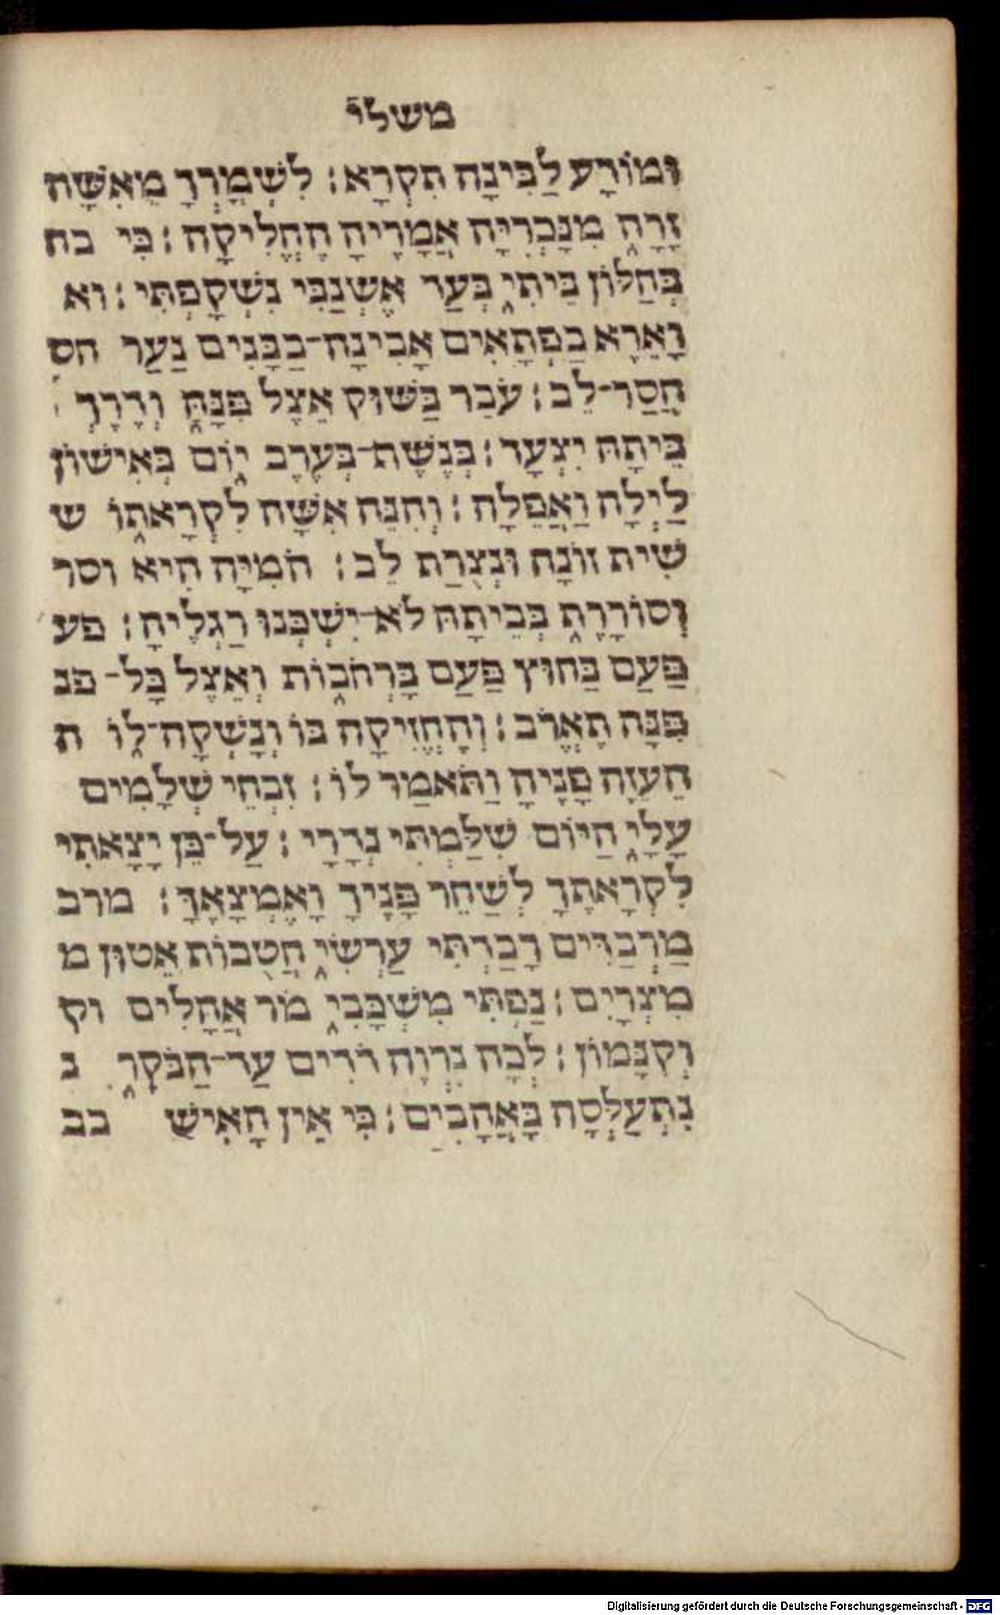 משלי
וּמוֹדָע לַבִּינָה תִקְרָא׃ לִשְׁמָרְךָ מֵאִשָּׁה
זָרָה מִנָּכְרִיָּה אֲמָרֶיהָ הֶחֱלִיקָה׃ כִּי בח
בְּחַלּוֹן בֵּיתִי בְּעַד אֶשְׁנַבִּי נִשְׁקָפְתִּי׃ וא
וָאֵרֶא בַפְּתָאיִם אָבִינָה־בַבָּנִים נַעַר חס
חֲסַר־לֵב׃ עֹבֵר בַּשּׁוּק אֵצֶל פִּנָּהּ וְדֶרֶךְ
בֵּיתָהּ יִצְעָד׃ בְּנֶשֶׁף־בְּעֶרֶב יוֹם בְּאִישׁוֹן
לַיְלָה וַאֲפֵלָה׃ וְהִנֵּה אִשָּׁה לִקְרָאתוֹ ש
שִׁית זוֹנָה וּנְצֻרַת לֵב׃ הֹמִיָּה הִיא וסר
וְסוֹרָרֶת בְּבֵיתָהּ לֹא־יִשְׁכְּנוּ רַגְלֶיהָ׃ פע
פַּעַם בַּחוּץ פַּעַם בָּרְחֹבוֹת וְאֵצֶל כָּל־ פנ
פִּנָּה תֶאֱרֹב׃ וְהֶחֱזִיקָה בּוֹ וְנָשְׁקָה־לוֹ ה
הֵעֵזָה פָנֶיהָ וַתֹּאמַר לוֹ׃ זִבְחֵי שְׁלָמִים
עָלָי הַיּוֹם שִׁלַּמְתִּי נְדָרָי׃ עַל־כֵּן יָצָאתִי
לִקְרָאתֶךָ לְשַׁחֵר פָּנֶיךָ וָאֶמְצָאֶךָּ׃ מרב
מַרְבַדִּים רָבַדְתִּי עַרְשִׂי חֲטֻבוֹת אֵטוּן מ
מִצְרָיִם׃ נַפְתִּי מִשְׁכָּבִי מֹר אֲהָלִים וק
וְקִנָּמוֹן׃ לְכָה נִרְוֶה דֹדִים עַד־הַבֹּקֶר נ
נִתְעַלְּסָה בָּאֳהָבִים׃ כִּי אֵין הָאִישׁ בב
Digitalisierung gefördert durch die Deutsche Forschungsgemeinschaft - DFG